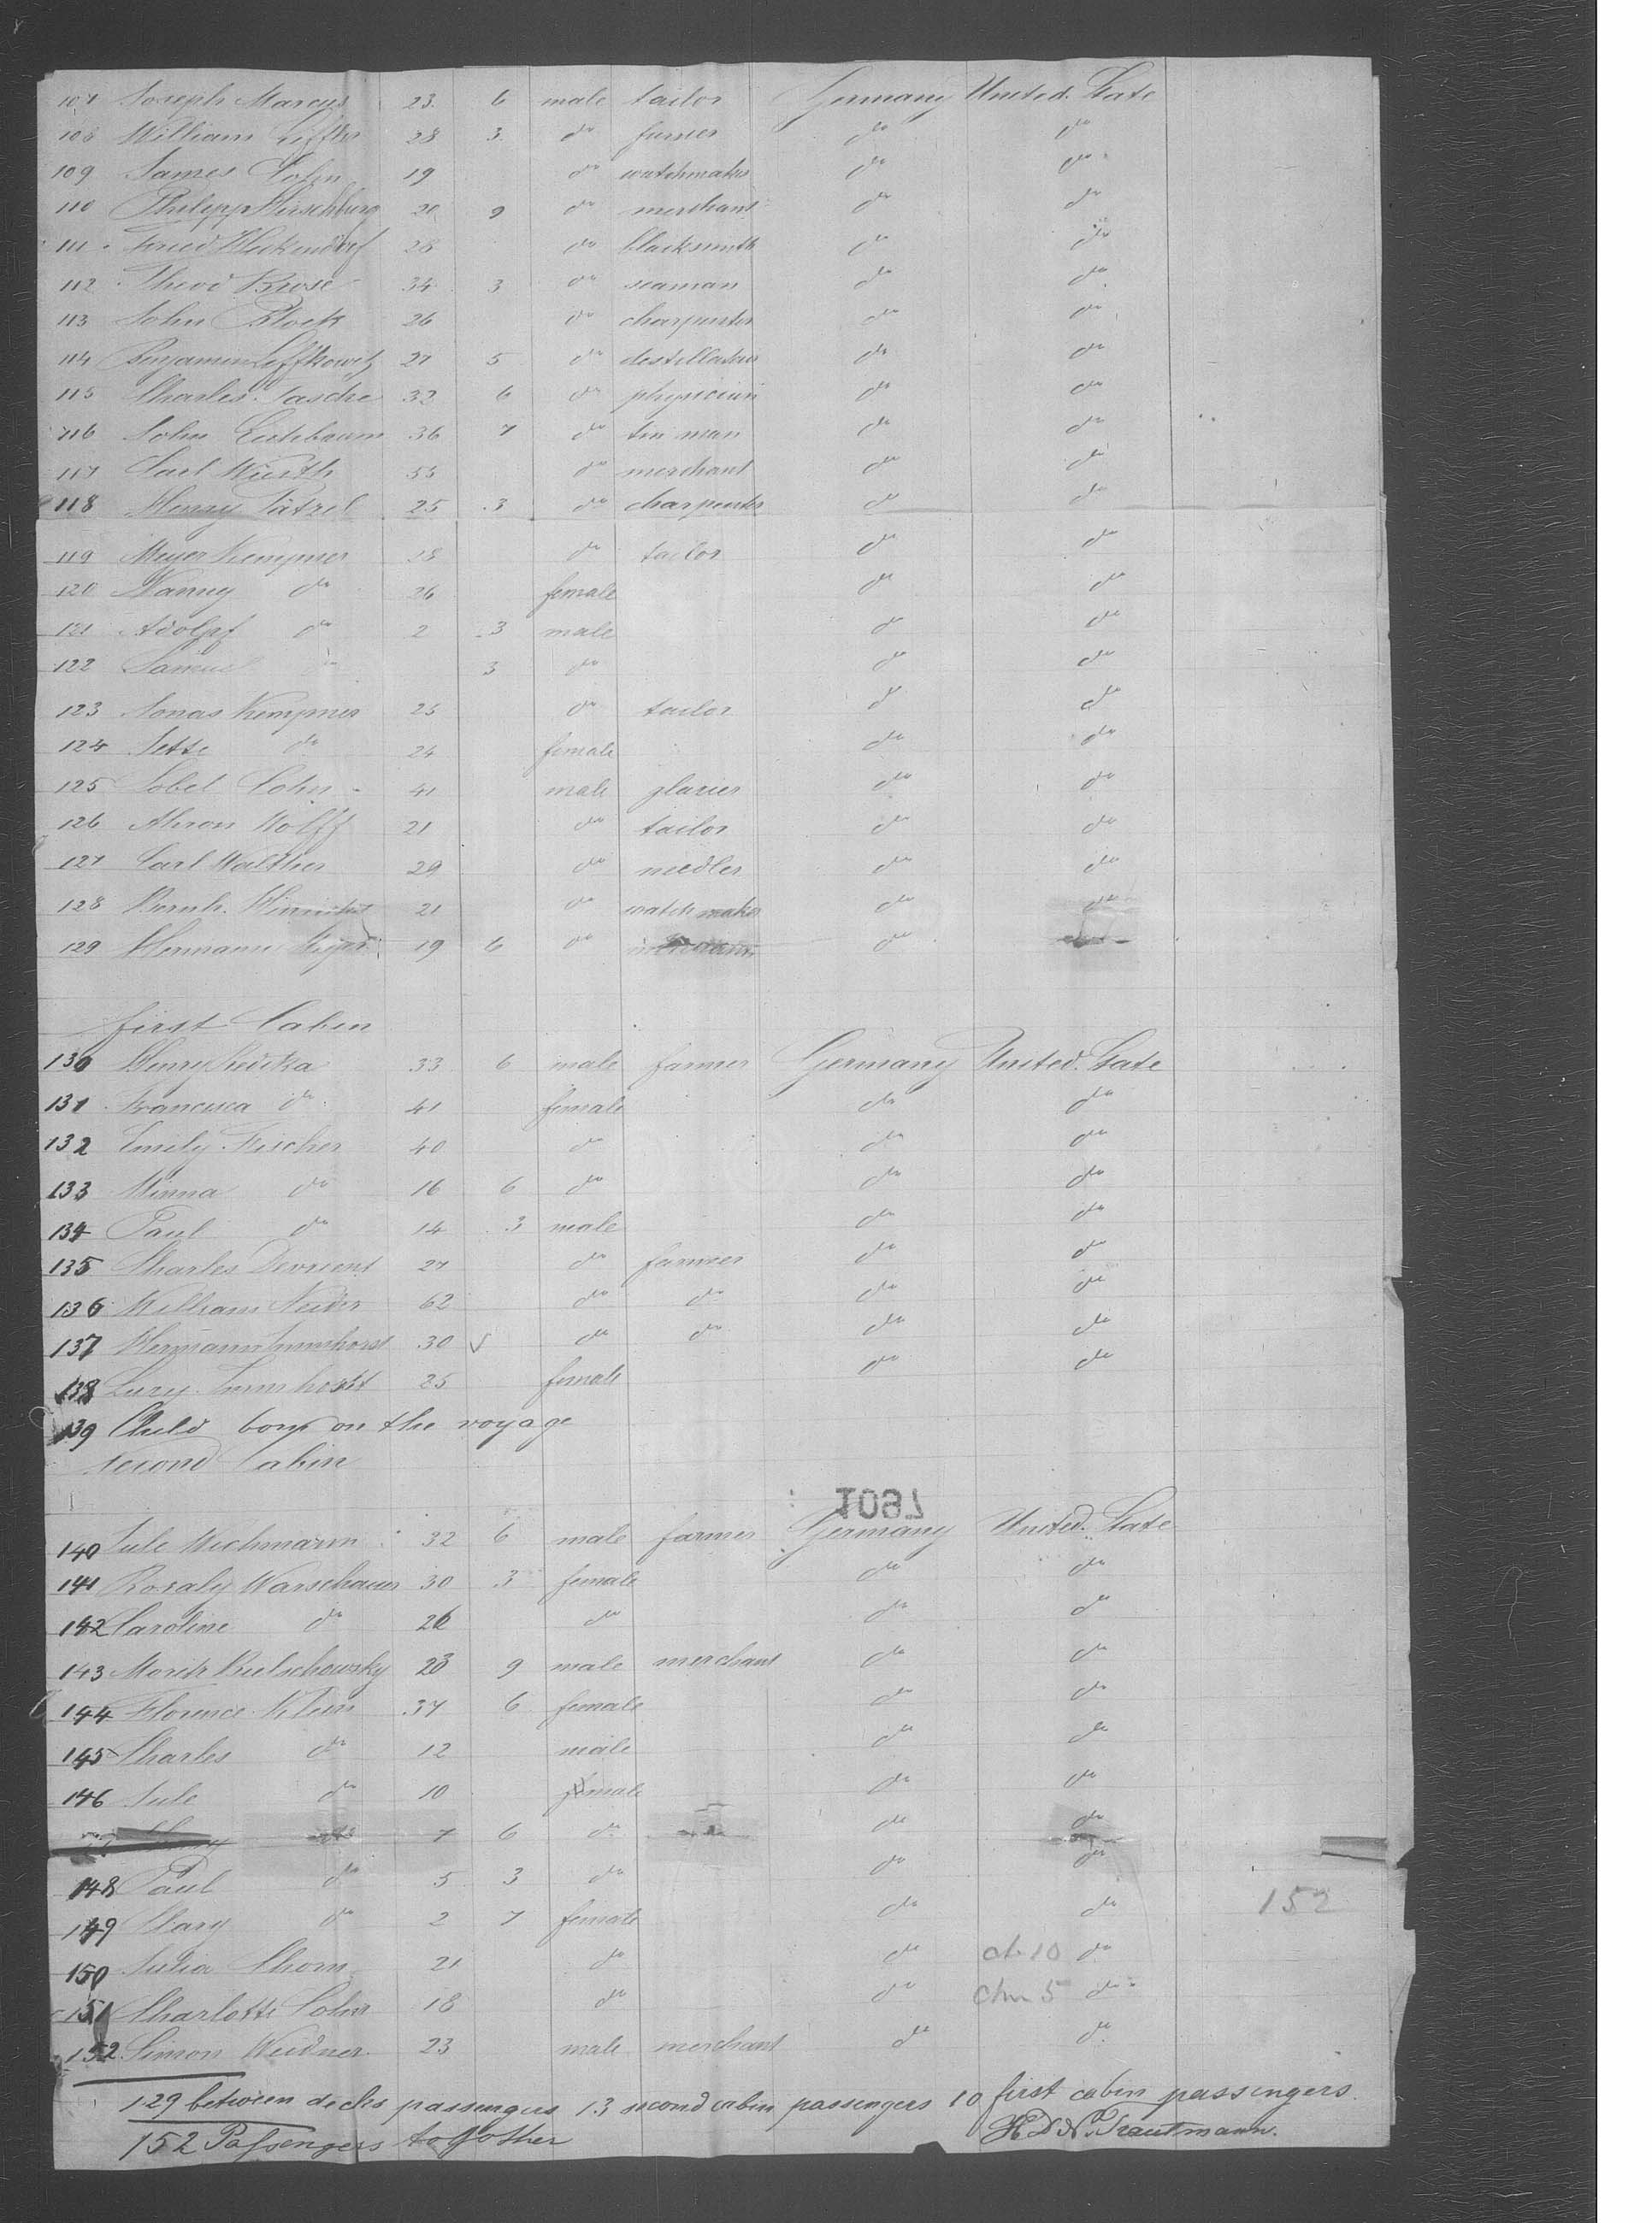 107 Joseph Marcus 23 6 male tailor Germany United State
108 William 28 3 do do do
109 James Cohn 19 do watchmaker do do
110 Philipp Hirschburg 20 9 do merchant do do
111 Fried Heckendorf 28 do blacksmith do do
112 Theod Brose 34 3 do seaman do do
113 John Block 26 do charpenter do do
114 Benjamin Leffkowitz 27 5 do destillateur do do
115 Charles Tasche 32 6 do physician do do
116 John 36 7 do tin man do do
117 Carl Wurth do merchant do do
118 Henry Pätzel 25 3 do charpenter do do
119 Meyer Kempner 28 do tailor do do
120 Nanny do 26 female do do
121 Adolpf do 2 3 male do do
122 Samuel do 3 do do do
123 Jonas Kempner 25 do tailor do do
124 Jette do 24 female do do
125 Lobel Cohn 41 male glazier do do
126 Ahron Wolff 21 do tailor do do
127 Carl Walther 29 do needler do do
128 Bernh. 21 do watchmaker do do
129 Hermann 19 6 do do
first Cabin
130 Henry 33 6 male farmer Germany United State
131 Francisca do 41 female do do
132 Emily Fischer 40 do do do
133 Minna do 16 6 do do do
134 Paul do 14 3 male do do
135 Charles Devrient 27 do farmer do do
136 William 62 do do do do
137 Hermann Immhorst 30 do do do do
138 Lucy Immhorst 25 female do do
139 Child born on the voyage
second Cabin
1097
140 Jule Wichmann 32 6 male farmer Germany United State
141 Rosaly Warschauer 30 3 female do do
142 Caroline do 26 do do do
143 Moritz 23 9 male merchant do do
144 Florence Klein 37 6 female do do
145 Charles do 12 male do do
146 Jule do 10 male do do
7 6 do do do
148 Paul do 5 3 do do do
152
149 Clary do 2 7 female do do
150 Julia Thorn 21 do do do
151 Charlotte Cohn 18 do do do
152 Simon Weidner 23 male merchant do do
129 between decks passengers 13 second cabin passengers 10 first cabin passengers
152 Passengers together H D N. Trautmann.